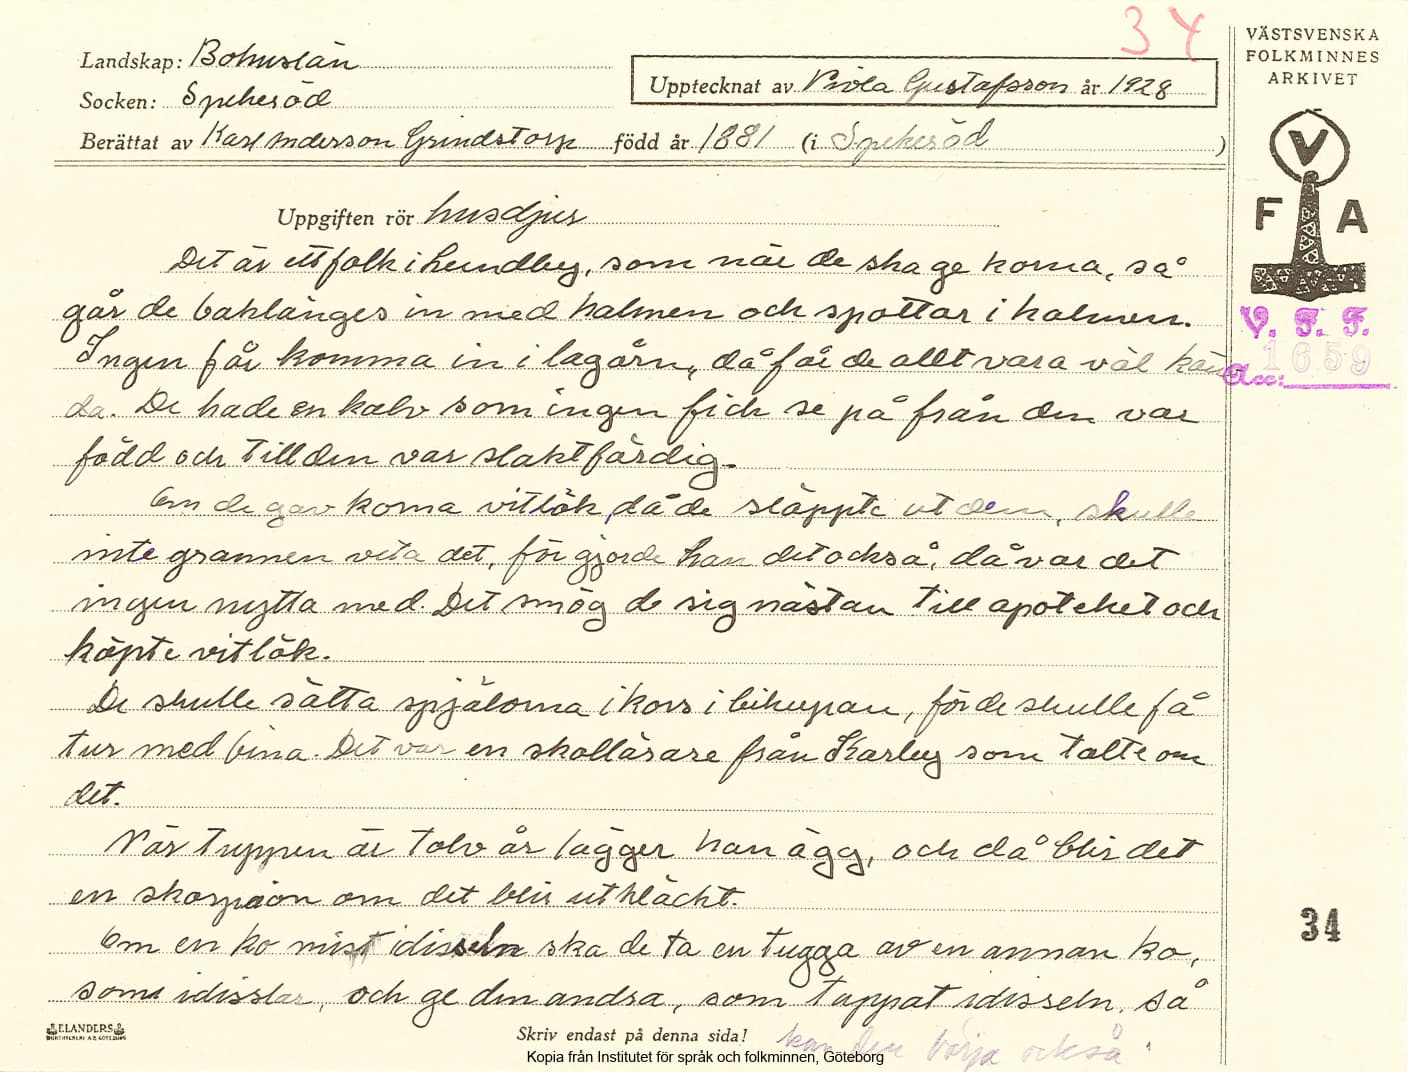 34
VÄSTSVENSKA
FOLKMINNES
ARKIVET
Landskap: Bohuslän
Socken: Spekeröd
Upptecknat av Viola Gustafsson år 1928
Berättat av Karl Anderson Grindstorp född år 1881 (i Spekeröd )
V
F A
V. F. F.
1659
Acc:
Uppgiften rör husdjur
Det är ett folk i Lundby, som när de ska ge korna, så
går de baklänges in med halmen och spottar i halmen.
Ingen får komma in i lagårn, då får de allt vara väl kän-
da. De hade en kalv som ingen fick se på från den var
född och till den var slaktfärdig.
Om de gav korna vitlök, då de släppte ut dem, skulle
inte grannen veta det, för gjorde han det också, då var det
ingen nytta med. Det smög de sig nästan till apoteket och
köpte vitlök.
De skulle sätta spjälorna i kors i bikupan, för de skulle få
tur med bina. Det var en skollärare från Karby som talte om
det.
När tuppen är tolv år lägger han ägg, och då blir det
en skorpion om det blir utkläckt.
Om en ko mist idisseln ska de ta en tugga av en annan ko,
som idisslar, och ge den andra, som tappat idisseln, så
kan den börja också.
34
ELANDERS
Skriv endast på denna sida!
Kopia från Institutet för språk och folkminnen, Göteborg